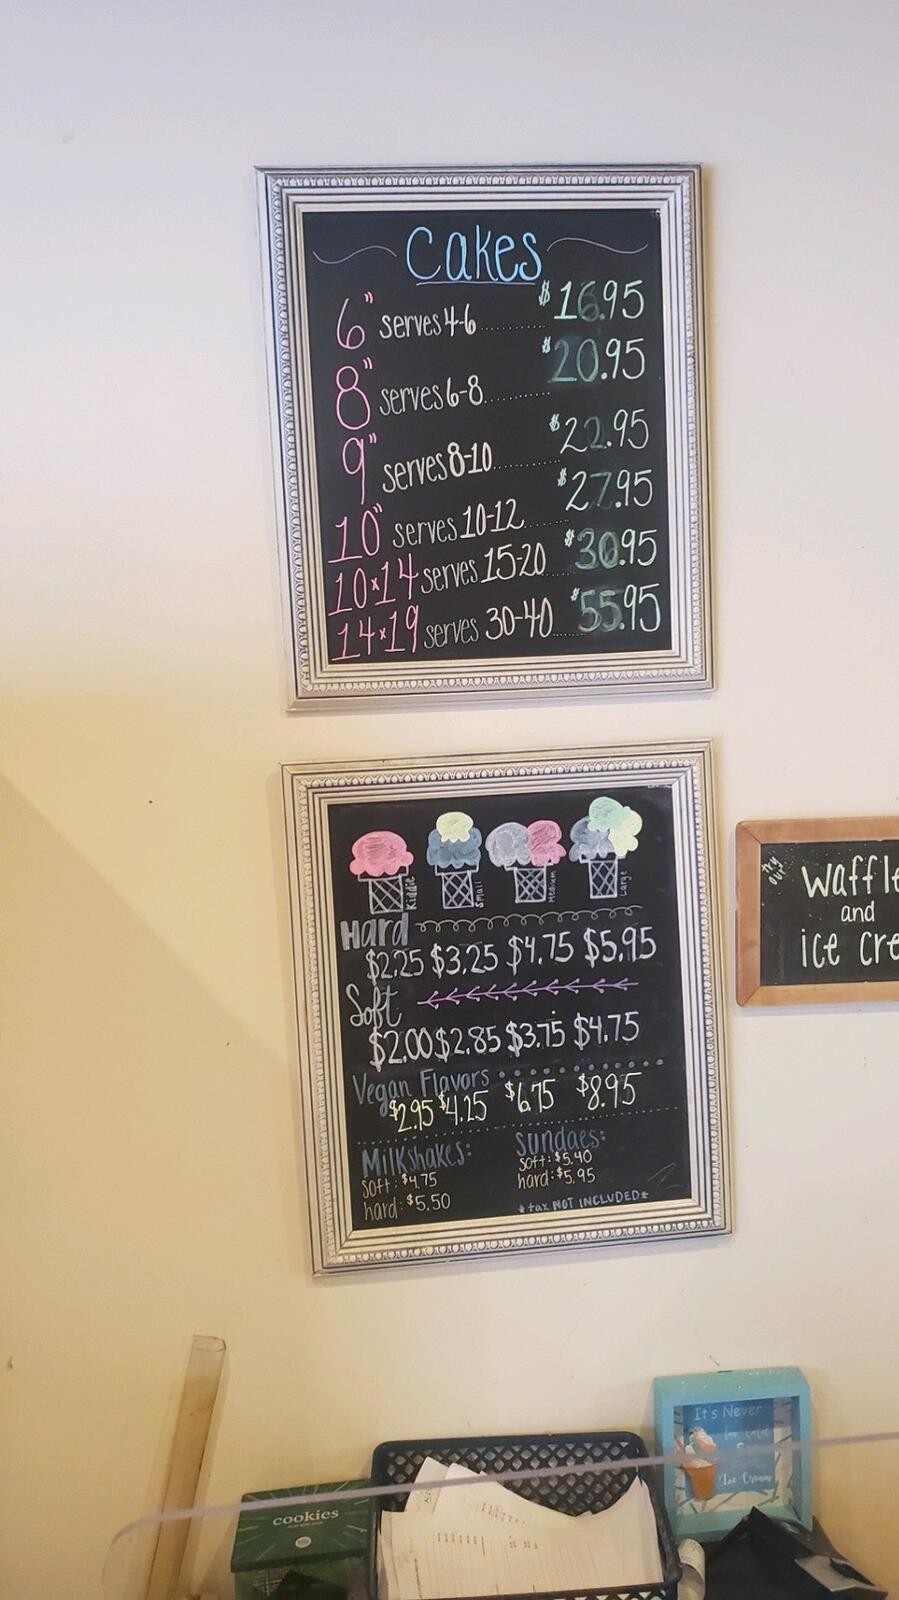 Cakes
6" serves 4-6 ........ $16.95
8" serves 6-8 ........ $20.95
9" serves 8-10 ........ $22.95
10" serves 10-12 ........ $27.95
10x14 serves 15-20 .... $36.95
14x19 serves 30-40 ..... $55.95
Kiddie Small Medium Large
Hard
$2.25 $3.25 $4.75 $5.95
Soft
$2.00 $2.85 $3.75 $4.75
Vegan Flavors
$2.95 $4.25 $6.75 $8.95
Milkshakes:
soft: $4.75
hard: $5.50
Sundaes:
soft: $5.40
hard: $5.95
*tax NOT INCLUDED*
try our
waffle
and
ice cre
cookies
It's Never
Ice Cream